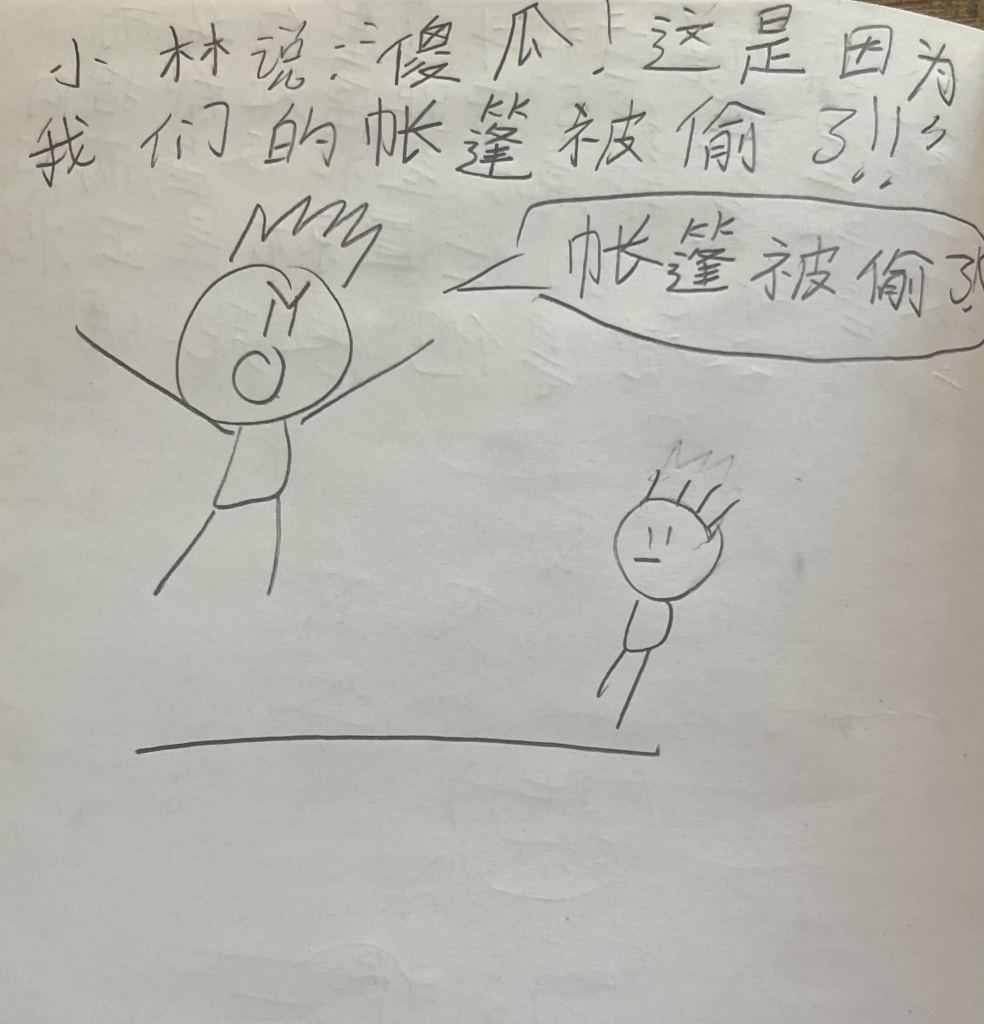 小林说:“傻瓜!这是因为
我们的帐篷被偷了!!”
帐篷被偷了!